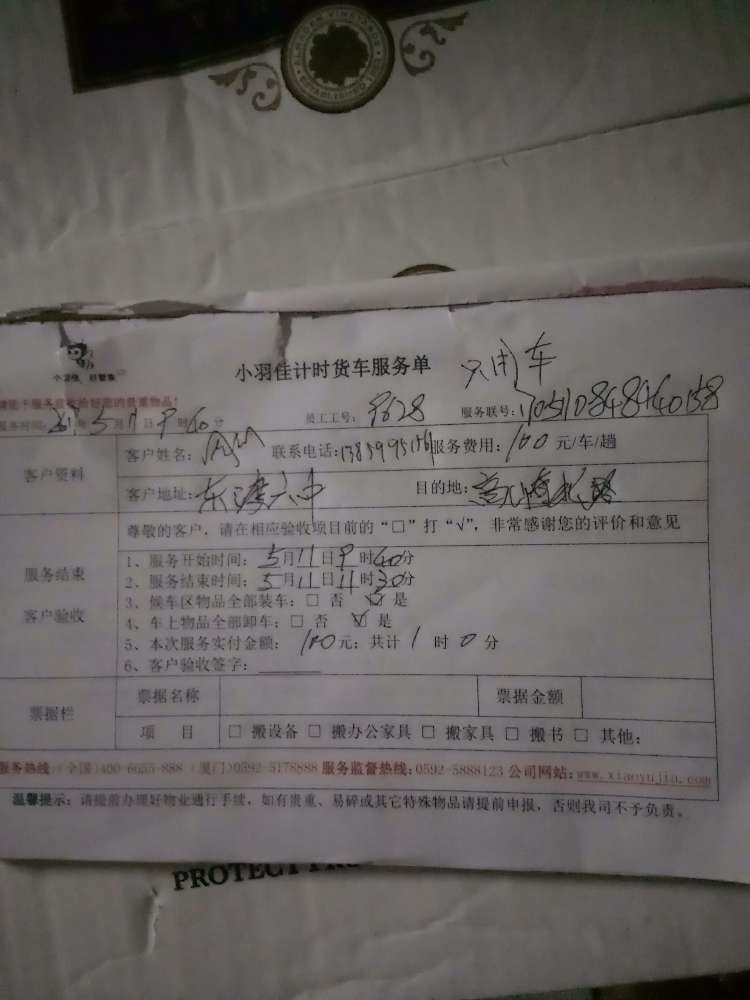 小羽佳计时货车服务单 只用车
小羽佳 好管家
服务时间: 年5月11日9时40分 员工工号: 服务联号:
客户资料
客户姓名: 联系电话: 服务费用:100元/车/趟
客户地址:东渡六中 目的地:
尊敬的客户,请在相应验收项目前的“□”打“√”,非常感谢您的评价和意见
服务结束
客户验收
1、服务开始时间:5月11日9时40分
2、服务结束时间:5月11日11时30分
3、候车区物品全部装车:□ 否 ☑ 是
4、车上物品全部卸车:□ 否 ☑ 是
5、本次服务实付金额: 100元;共计1时0分
6、客户验收签字:
票据栏
票据名称 票据金额
项 目 □ 搬设备 □ 搬办公家具 □ 搬家具 □ 搬书 □ 其他:
服务热线:(全国)400-6055-888 (厦门)0592-5178888 服务监督热线:0592-5888123 公司网站:www.xiaoyujia.com
温馨提示:请提前办理好物业通行手续,如有贵重、易碎或其它特殊物品请提前申报,否则我司不予负责。